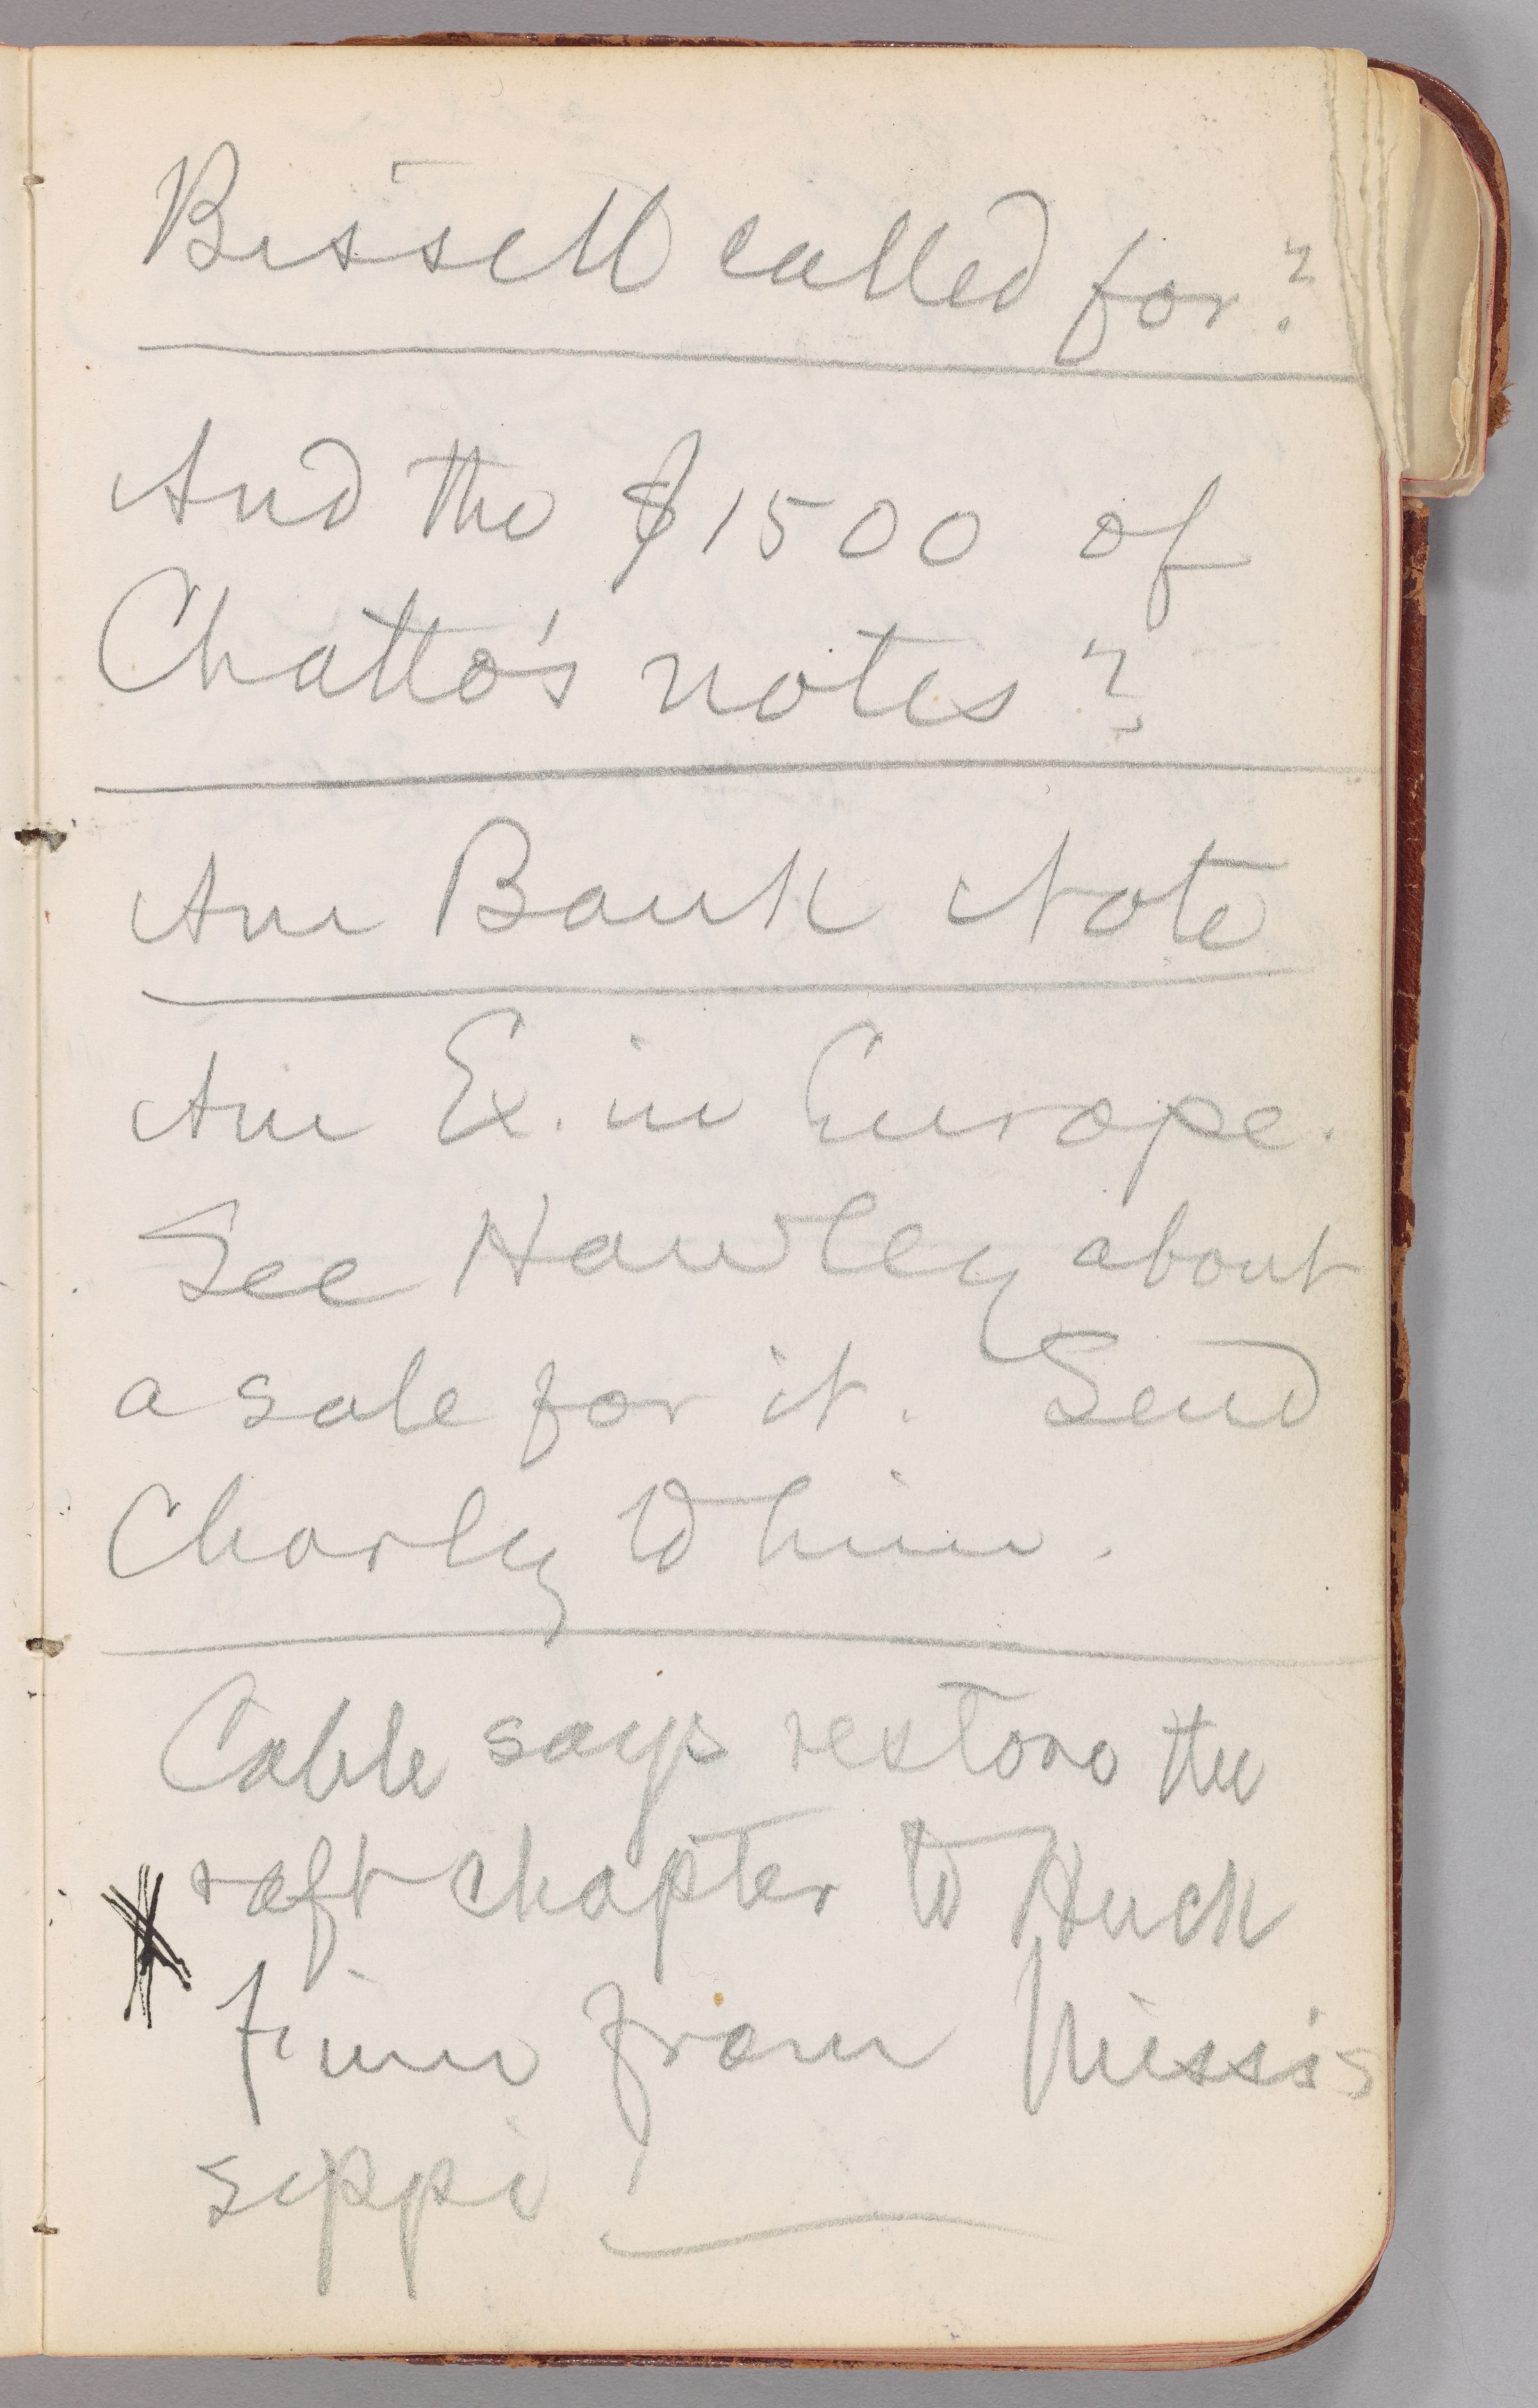 Bissell called for?
And the $1500 of
Chatto's notes?
Am Bank Note
Am Ex. in Europe.
See Hawley about
a sale for it. Send
Charley to him.
Cable says restore the
raft chapter to Huck
Finn from Missis
sippi